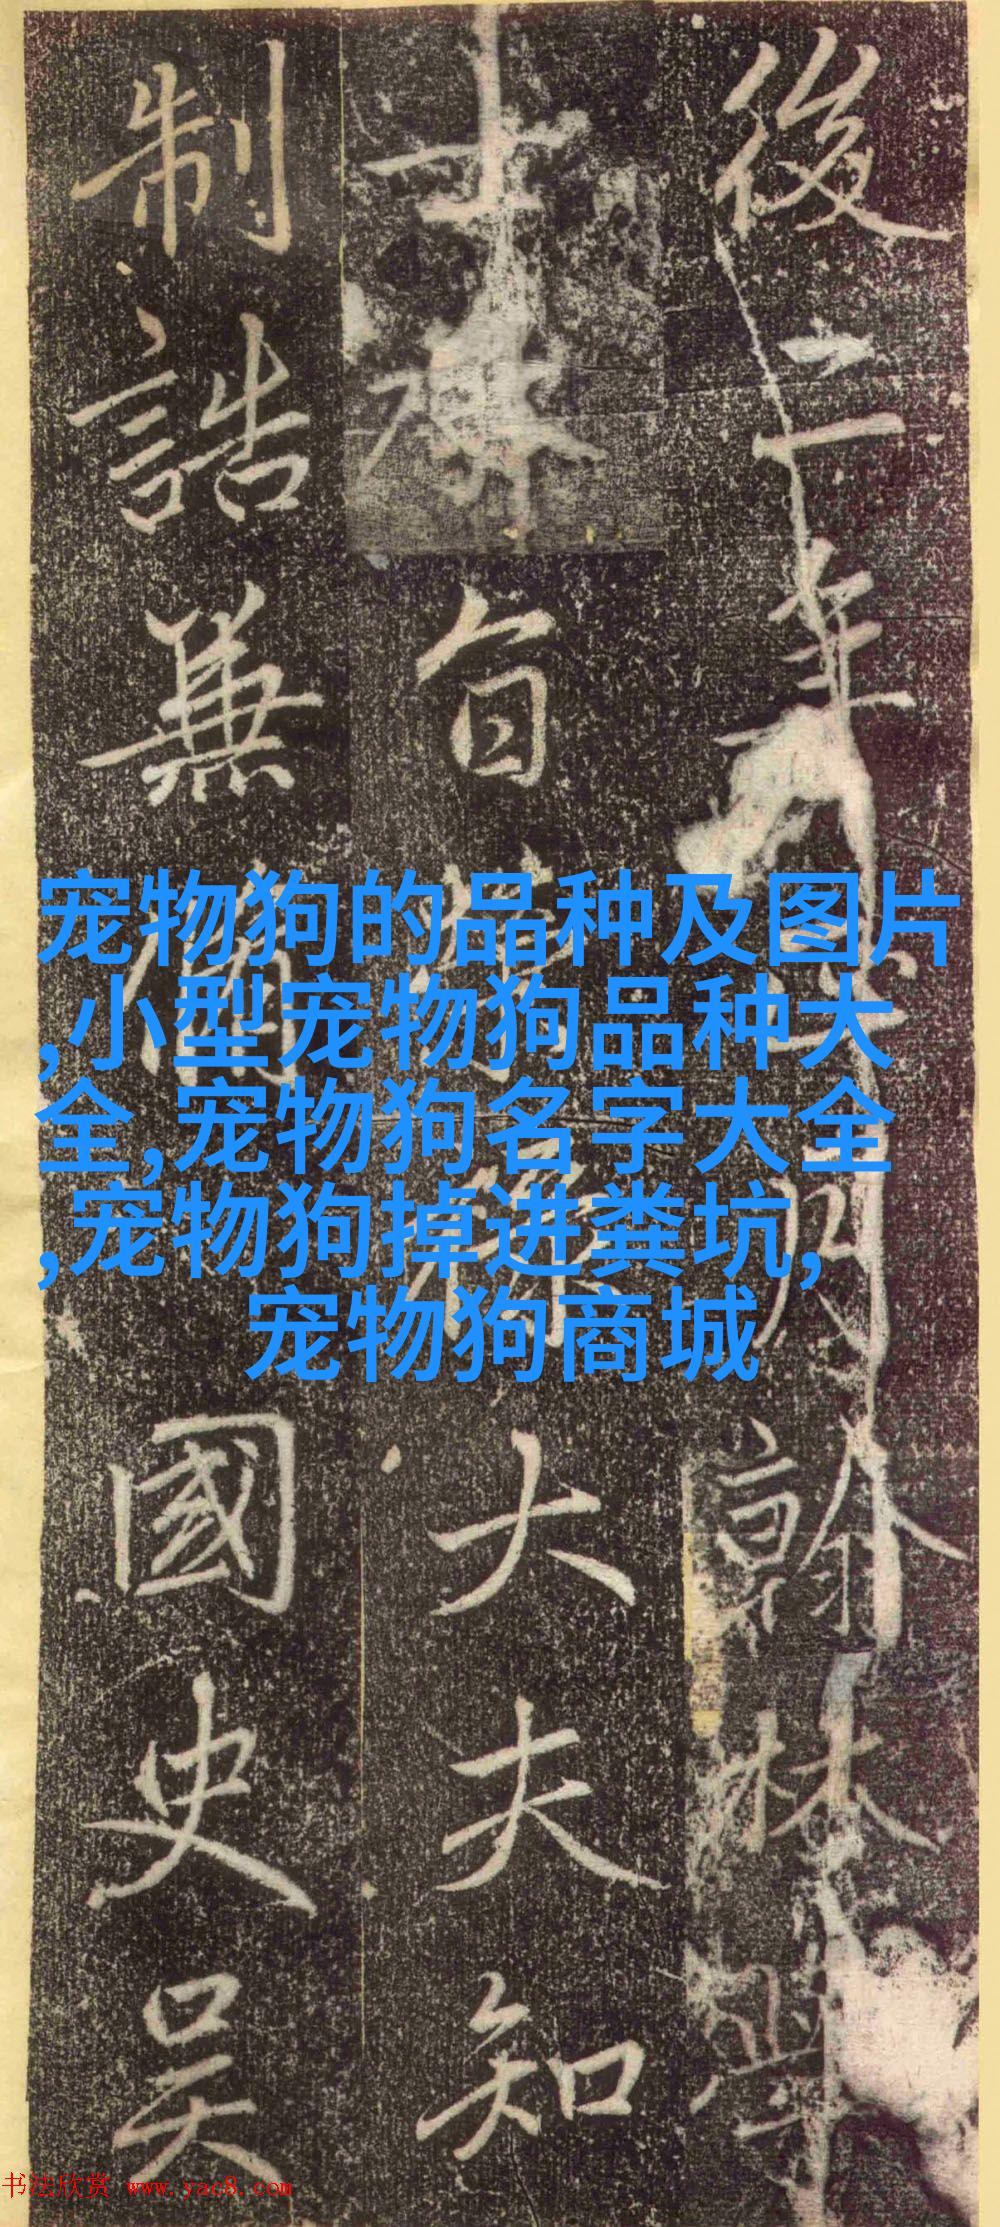 後二年正月翰林學
士朝
旨
大夫知
制誥兼備
國史吴
宠物狗的品种及图片
,小型宠物狗品种大
全,宠物狗名字大全
,宠物狗掉进粪坑,
宠物狗商城
书法欣赏 www.yac8.com